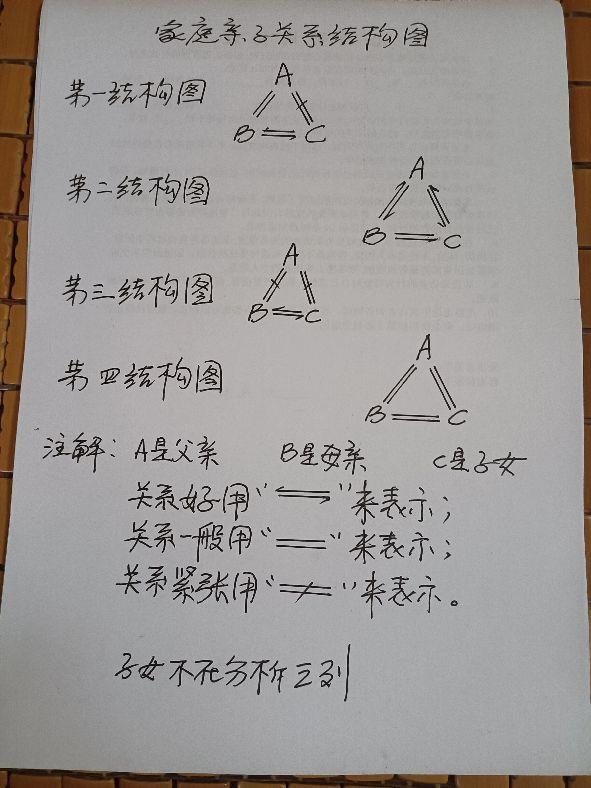 家庭亲子关系结构图
第一结构图
A
B C
第二结构图
A
B C
第三结构图
A
B C
第四结构图
A
B C
注解: A是父亲 B是母亲 C是子女
关系好用“⇌”来表示;
关系一般用“=”来表示;
关系紧张用“≠”来表示。
子女不在分析之列